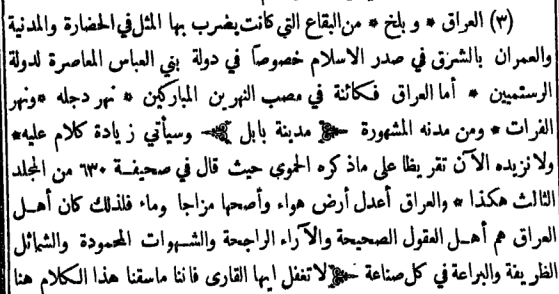 (٣) العراق * و بلخ * من البقاع التي كانت يضرب بها المثل في الحضارة والمدنية
والعمران بالشرق في صدر الاسلام خصوصاً في دولة بني العباس المعاصرة لدولة
الرستميين * أما العراق فكائنة في مصب النهرين المباركين * نهر دجله * ونهر
الفرات * ومن مدنه المشهورة مدينة بابل وسيأتي زيادة كلام عليه *
ولا نزيده الآن تقريظا على ماذكره الحموي حيث قال في صحيفة ٦٣٠ من المجلد
الثالث هكذا * والعراق أعدل أرض هواء وأصحها مزاجا وماء فلذلك كان أهل
العراق هم أهل العقول الصحيحة والآراء الراجحة والشهوات المحمودة والشمائل
الظريفة والبراعة في كل صناعة لا تغفل ايها القارى فاننا ماسقنا هذا الكلام هنا